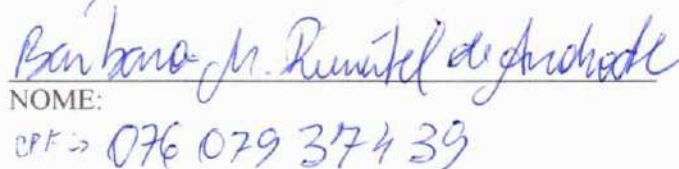 Bárbara M. Pimentel de Andrade
NOME:
CPF: 076 079 374 39